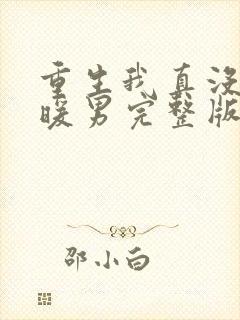 重生我真没
暖男完整版
邵小白